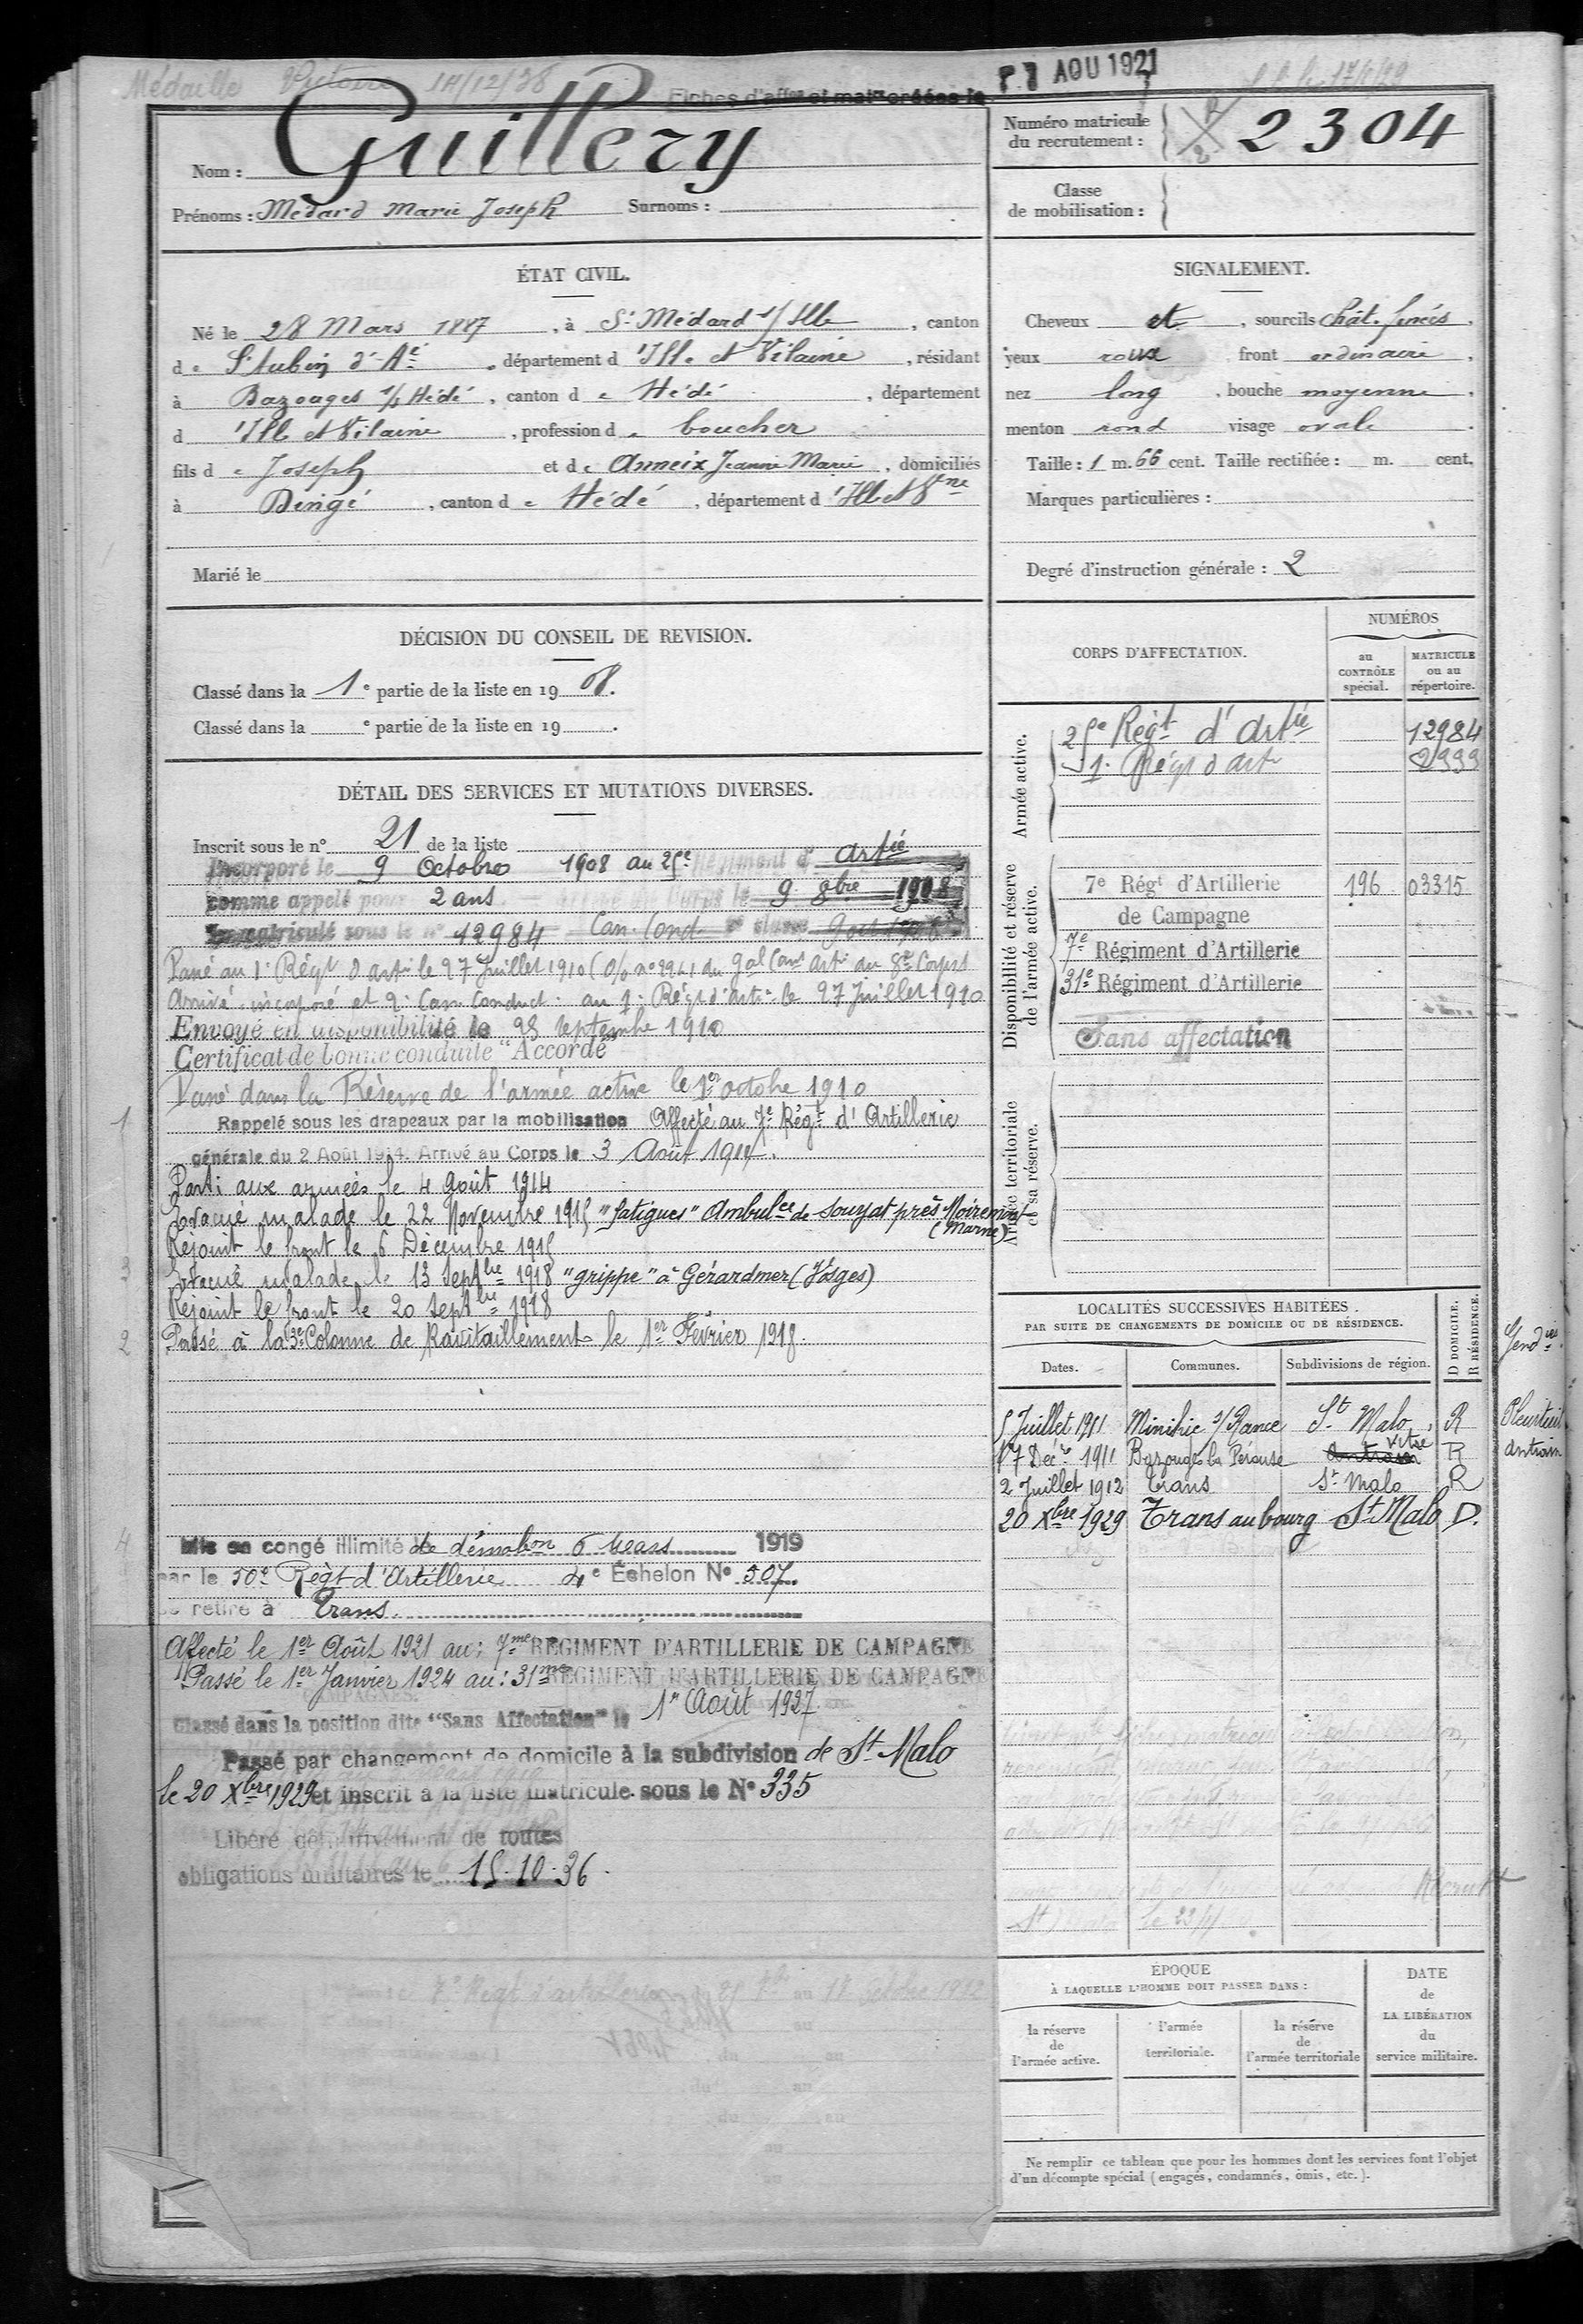 Médaille Victoire 14/12/38
Fiches d'affon et matre créées le
AOU 1921
Nom : Guillery
Prénoms : Médard Marie Joseph Surnoms :
Numéro matricule du recrutement : 2304
Classe de mobilisation :
ÉTAT CIVIL.
Né le 28 Mars 1887, à St Médard s/ Ille, canton
de St Aubin d'A.é, département d'Ille et Vilaine, résidant
à Bazouges s/s Hédé, canton de Hédé, département
d'Ille et Vilaine, profession de boucher
fils de Joseph et de Anneix Jeanne Marie, domiciliés
à Dingé, canton de Hédé, département d'Ille et Vne
Marié le
SIGNALEMENT.
Cheveux et, sourcils chât. foncés,
yeux roux front ordinaire,
nez long, bouche moyenne,
menton rond visage ovale.
Taille : 1 m. 66 cent. Taille rectifiée : m. cent.
Marques particulières :
Degré d'instruction générale : 2
DÉCISION DU CONSEIL DE REVISION.
Classé dans la 1e partie de la liste en 1908.
Classé dans la e partie de la liste en 19 .
DÉTAIL DES SERVICES ET MUTATIONS DIVERSES.
Inscrit sous le n° 21 de la liste
Incorporé le 9 Octobre 1908 au 25e Régiment d' Artie
comme appelé pour 2 ans arrivé au Corps le 9 8bre 1908
Immatriculé sous le n° 12984 Can. Cond 2e classe
Passé au 1er Régt d'artie le 27 Juillet 1910 ( du Gal Cant artie du 8e Corps)
Arrivé, incorporé et 2e Can. Conduct. au 1er Régt d'artie le 27 Juillet 1910
Envoyé en disponibilité le 25 septembre 1910
Certificat de bonne conduite "Accordé"
Passé dans la Réserve de l'armée active le 1er octobre 1910
1 Rappelé sous les drapeaux par la mobilisation Affecté au 7e Régt d'Artillerie
générale du 2 Août 1914. Arrivé au Corps le 3 Août 1914.
Parti aux armées le 4 Août 1914
Evacué malade le 22 Novembre 1915 "fatigues" Ambulce de Souyat près Noiremont (Marne)
Rejoint le front le 6 Décembre 1915
3 Evacué malade le 13 Septbre 1918 "grippe" à Gérardmer (Vosges)
Rejoint le front le 20 Septbre 1918
2 Passé à la 3e Colonne de Ravitaillement le 1er Février 1918.
4 Mis en congé illimité de démobon 6 Mars 1919
par le 50e Régt d'Artillerie 4e Échelon N° 507.
se retire à Trans.
Affecté le 1er Août 1921 au : 7me REGIMENT D'ARTILLERIE DE CAMPAGNE
Passé le 1er Janvier 1924 au : 31me REGIMENT D'ARTILLERIE DE CAMPAGNE
Classé dans la position dite "Sans Affectation" le 1er Août 1927.
Passé par changement de domicile à la subdivision de St Malo
le 20 Xbre 1929 et inscrit à la liste matricule sous le N° 335
Libéré définitivement de toutes
obligations militaires le 15.10.36.
CORPS D'AFFECTATION.
NUMÉROS
au CONTRÔLE spécial.
MATRICULE ou au répertoire.
Armée active.
25e Régt d'Artie 12984
1er Régt d'arti 2999
Disponibilité et réserve de l'armée active.
7e Régt d'Artillerie 196 03315
de Campagne
7e Régiment d'Artillerie
31e Régiment d'Artillerie
Sans affectation
Armée territoriale et sa réserve.
LOCALITÉS SUCCESSIVES HABITÉES.
PAR SUITE DE CHANGEMENTS DE DOMICILE OU DE RÉSIDENCE.
Dates. Communes. Subdivisions de région. D DOMICILE. R RÉSIDENCE. Gendies
5 Juillet 1911 Minihic s/Rance St Malo R Pleurtuit
17 Déc. 1911 Bazouges la Pérouse Antrain Vitré R Antrain
2 Juillet 1912 Trans St Malo R
20 Xbre 1929 Trans au bourg St Malo D.
ÉPOQUE
À LAQUELLE L'HOMME DOIT PASSER DANS :
la réserve de l'armée active.
l'armée territoriale.
la réserve de l'armée territoriale
DATE de LA LIBÉRATION du service militaire.
Ne remplir ce tableau que pour les hommes dont les services font l'objet
d'un décompte spécial (engagés, condamnés, omis, etc.).